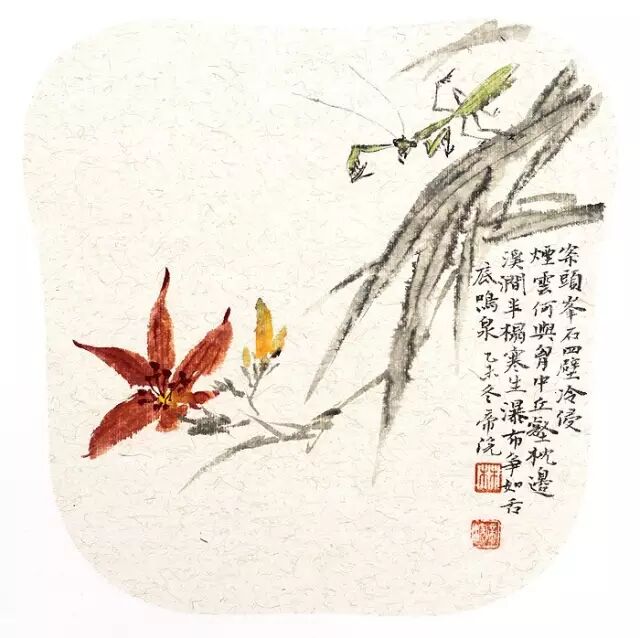 案頭峯石四壁冷侵
煙雲何與胷中丘壑枕邊
溪澗半榻寒生瀑布爭如舌
底鳴泉 乙未冬帝浣